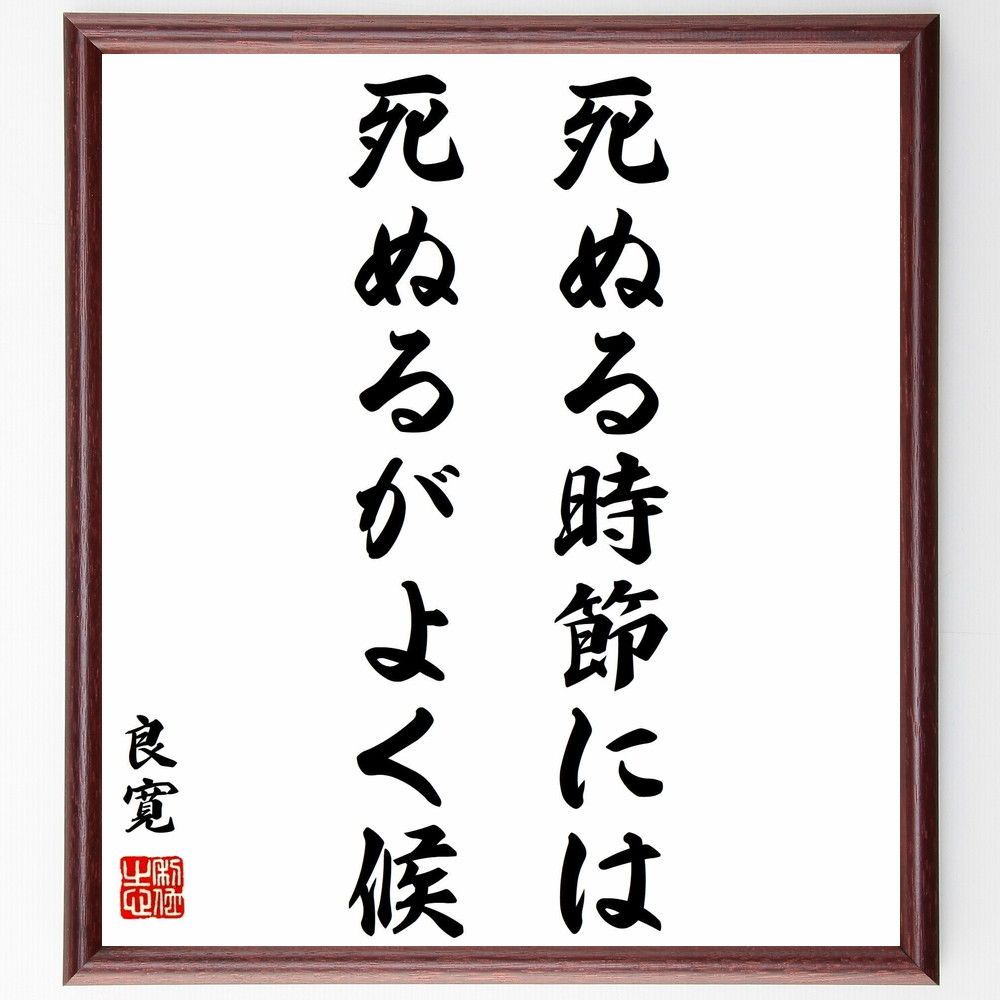 死ぬる時節には
死ぬるがよく候
良寛